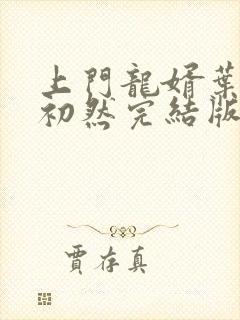 上門龍婿葉
初然完結版
賈存真